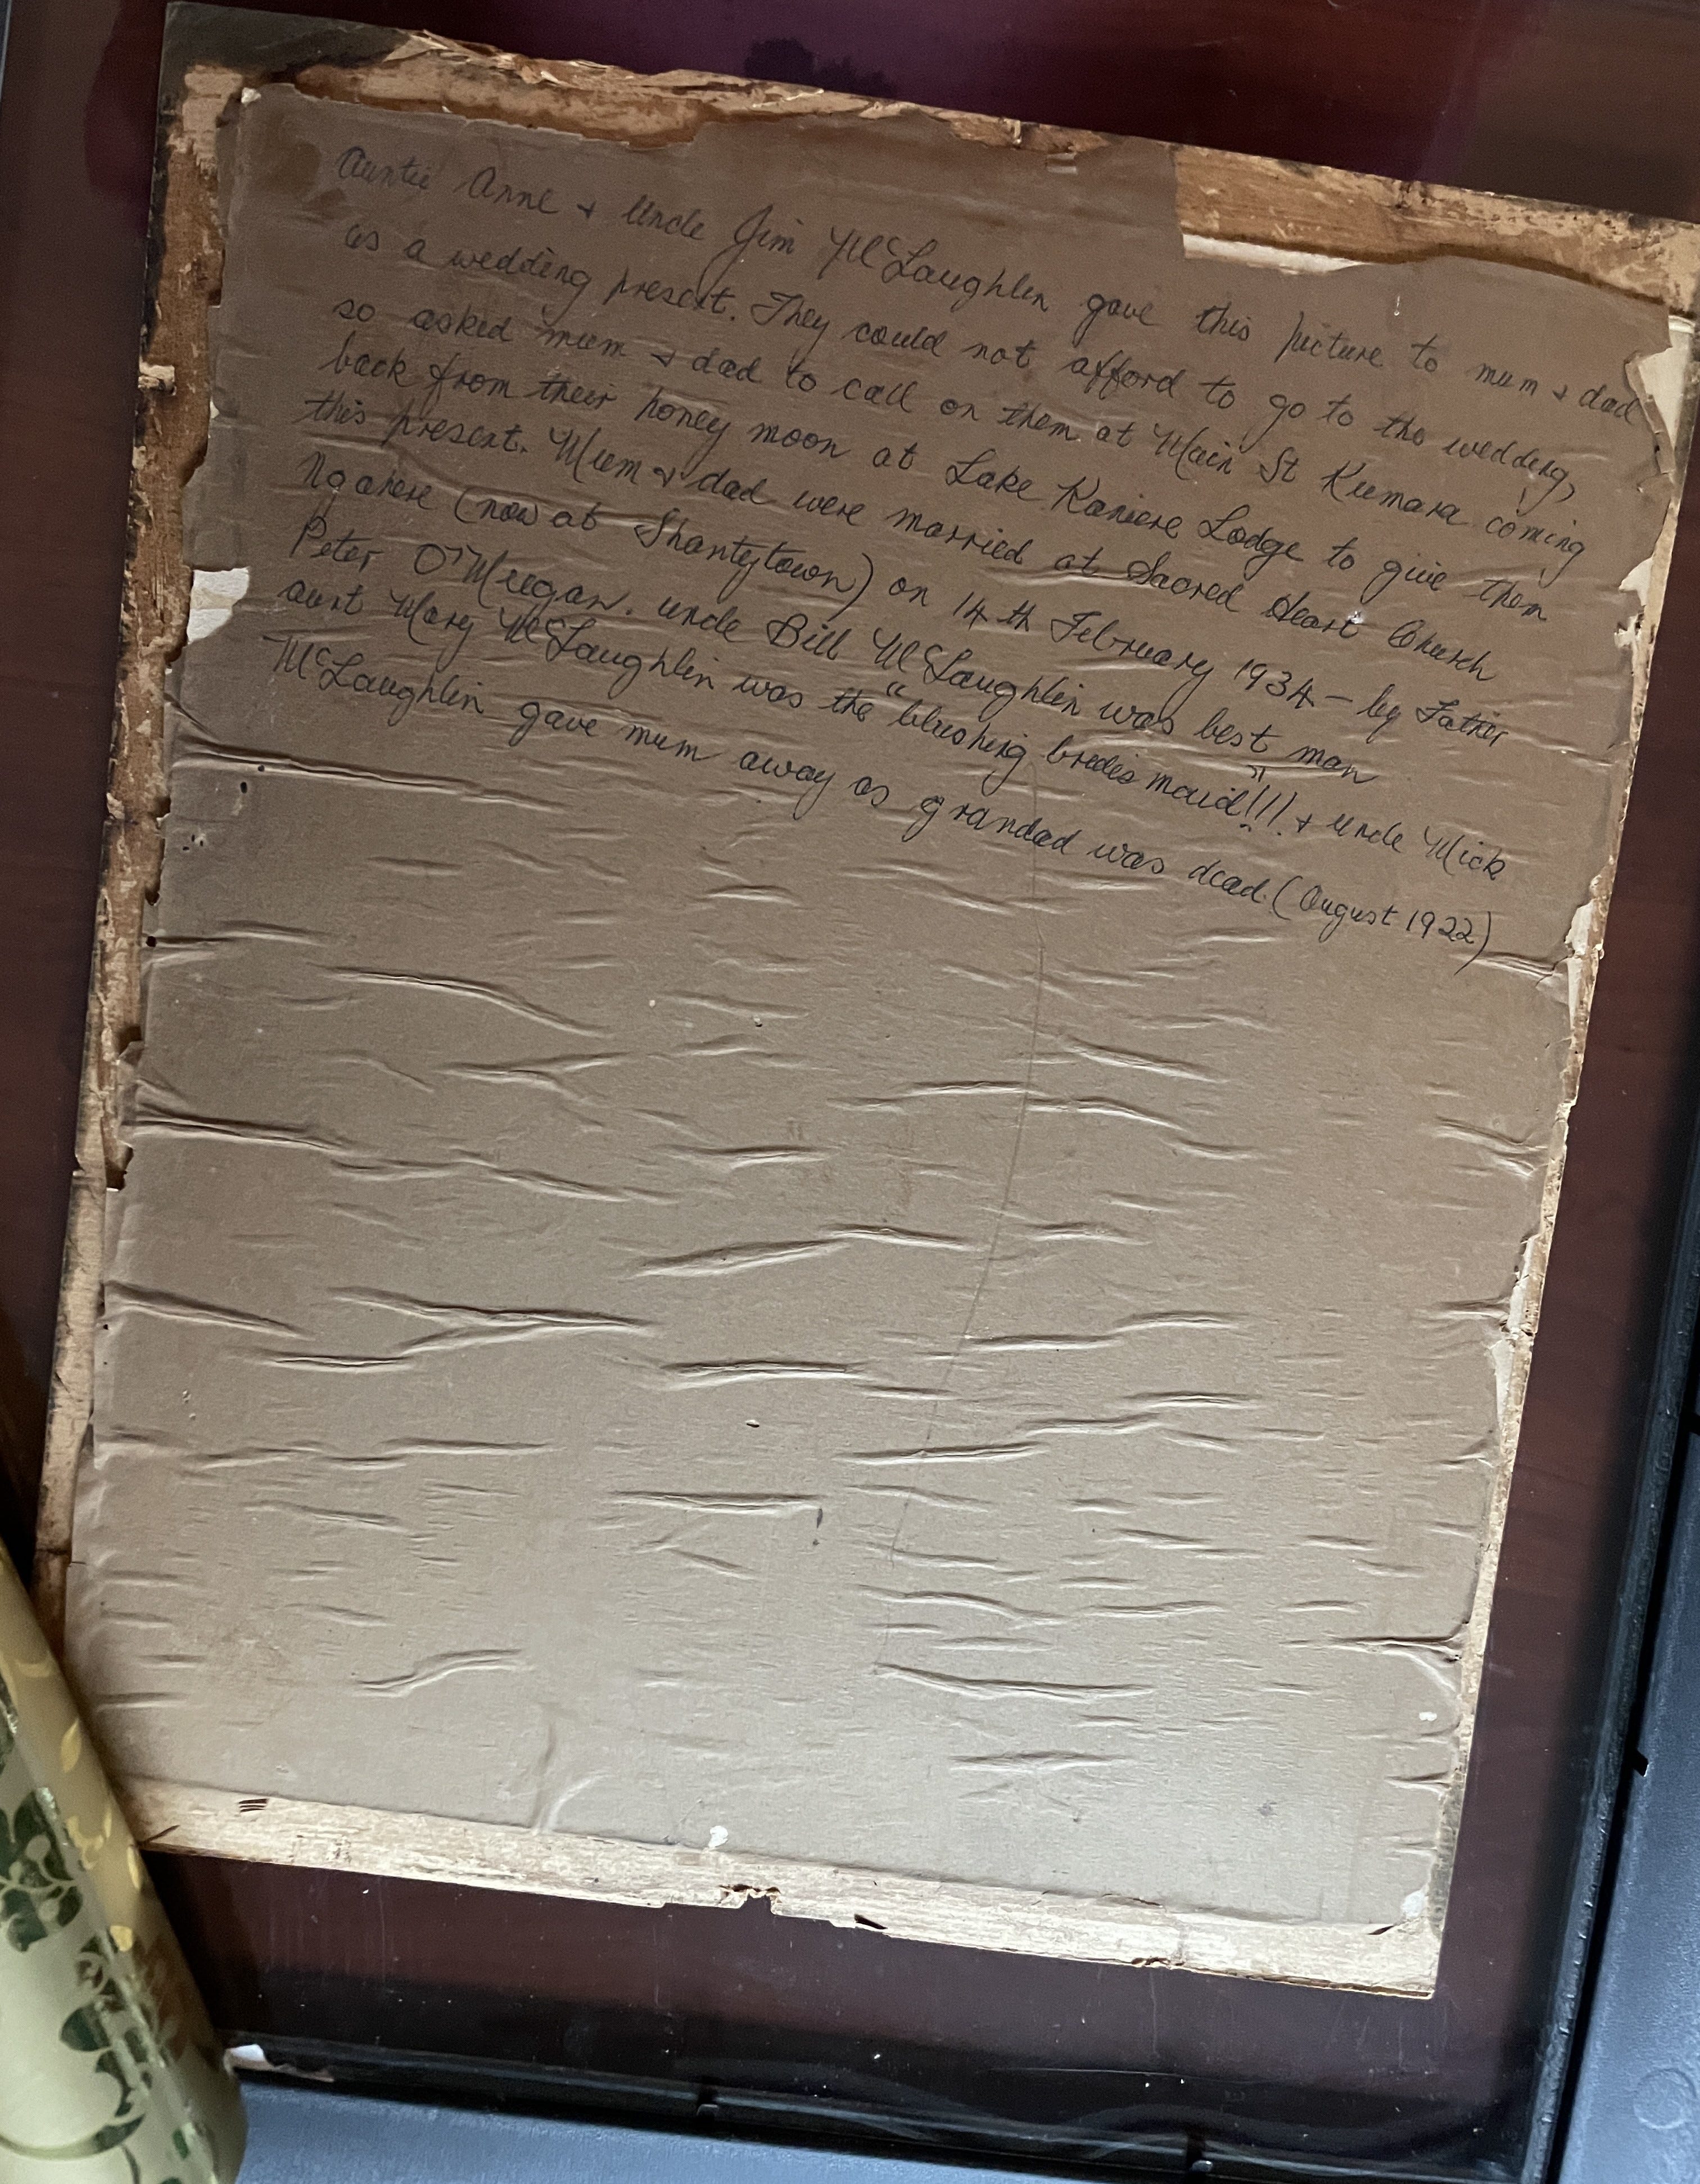 Auntie Anne + Uncle Jim McLaughlin gave this picture to mum + dad
as a wedding present. They could not afford to go to the wedding,
so asked mum + dad to call on them at Main St Kumara coming
back from their honey moon at Lake Kaniere Lodge to give them
this present. Mum + dad were married at Sacred Heart Church
Ngahere (now at Shantytown) on 14th February 1934 - by Father
Peter O'Meegan. uncle Bill McLaughlin was best man
aunt Mary McLaughlin was the "blushing brides maid!!!" + uncle Mick
McLaughlin gave mum away as grandad was dead. (August 1922)